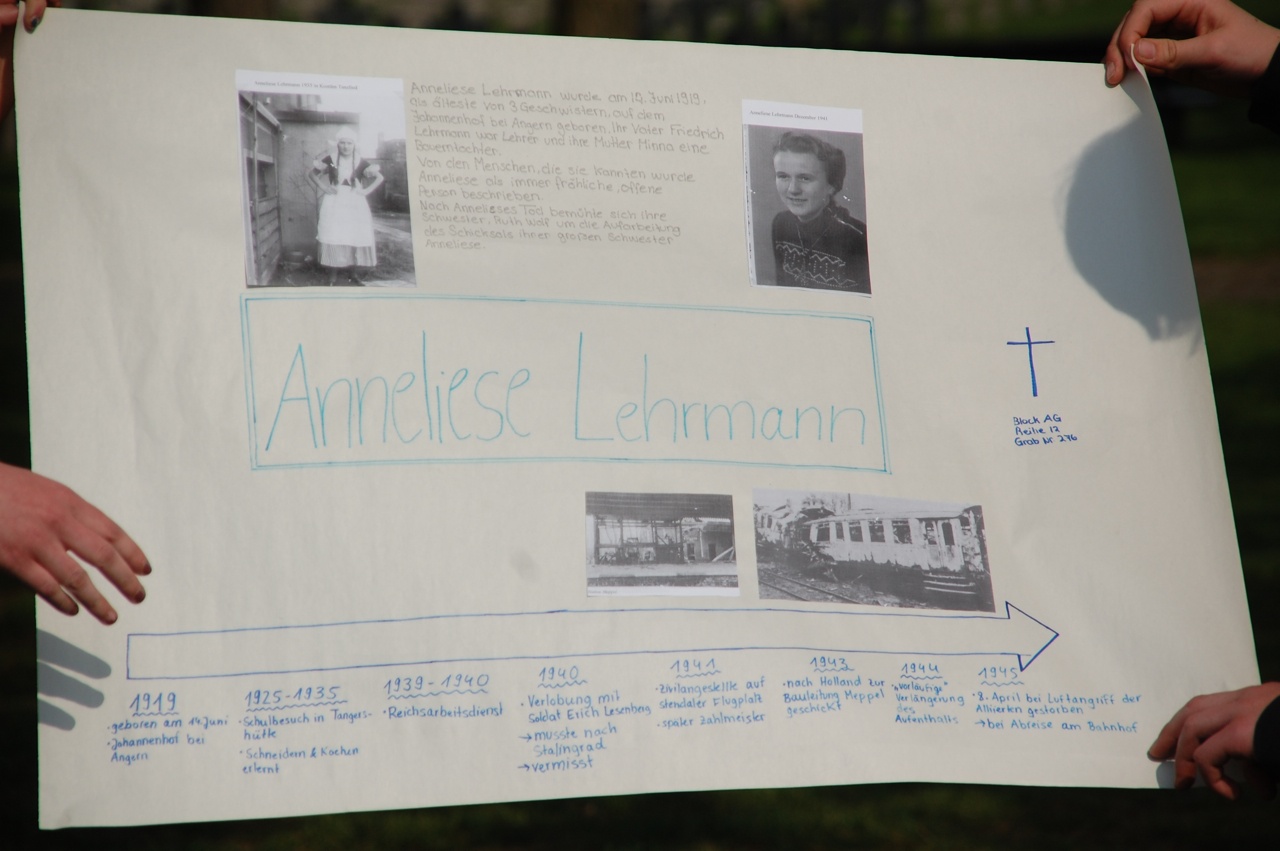 Anneliese Lehrmann 1935 in
Anneliese Lehrmann wurde am 14. Juni 1919,
als älteste von 3 Geschwistern, auf dem
Johannenhof bei Angern geboren. Ihr Vater Friedrich
Lehrmann war Lehrer und ihre Mutter Minna eine
Bauerntochter.
Von den Menschen, die sie kannten wurde
Anneliese als immer fröhliche, offene
Person beschrieben.
Nach Annelieses Tod bemühte sich ihre
Schwester, Ruth Wolf um die Aufarbeitung
des Schicksals ihrer großen Schwester
Anneliese.
Anneliese Lehrmann Dezember 1941
Anneliese Lehrmann
Block AG
Reihe 12
Grab Nr 276
1919
· geboren am 14 Juni
· Johannenhof bei
Angern
1925-1935
· Schulbesuch in Tanger-
hütte
· Schneidern & Kochen
erlernt
1939-1940
· Reichsarbeitsdienst
1940
· Verlobung mit
Soldat Erich Lesenberg
→ musste nach
Stalingrad
→ vermisst
1941
· Zivilangestellte auf
stendaler Flugplatz
· später Zahlmeister
1943
· nach Holland zur
Bauleitung Meppel
geschickt
1944
· "vorläufige"
Verlängerung
des
Aufenthalts
1945
· 8. April bei Luftangriff der
Alliierten gestorben
→ bei Abreise am Bahnhof